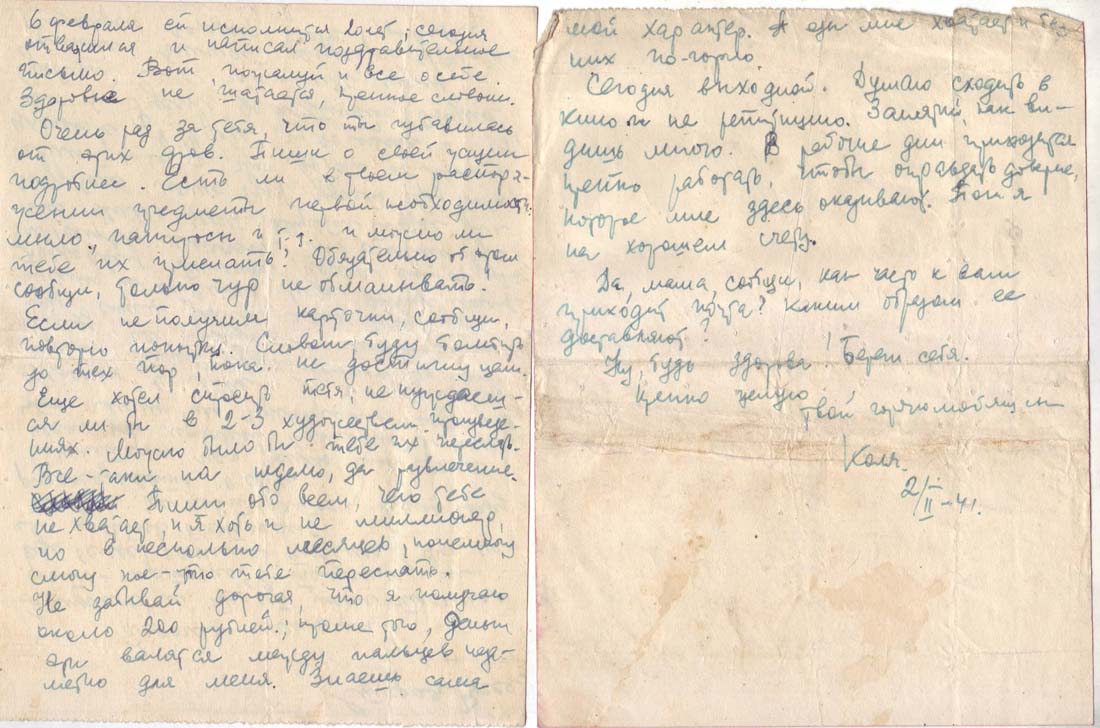 6 февраля ей исполнится 20 лет, сегодня
отважился и написал поздравительное
письмо. Вот, пожалуй и все о себе.
Здоровье не шатается, крепкое словом.
Очень рад за тебя, что ты избавилась
от этих дров. Пиши о своей жизни
подробнее. Есть ли в твоем распоря-
жении предметы первой необходимости:
мыло, папиросы и т.д. и можно ли
тебе их присылать? Обязательно об этом
сообщи, только чур не обманывать.
Если не получили карточки, сообщи,
повторю попытку. Словом буду
до тех пор, пока не достигну цели.
Еще хотел спросить тебя, не нуждаеш-
ся ли ты в 2-3 художествен. произведе-
ниях. Можно было бы тебе их переслать.
Все-таки на неделю, да развлечение.
Пиши обо всем, чего тебе
не хватает, и я хоть и не миллионер,
но в несколько месяцев, понемногу
смогу кое-что тебе переслать.
Не забывай дорогая, что я получаю
около 200 рублей.; кроме того, деньги
эти валятся между пальцев неза-
метно для меня. Знаешь сама
мой характер. А еды мне хватает и без
них по-горло.
Сегодня выходной. Думаю сходить в
кино и на репетицию. Занятий, как ви-
дишь много. В рабочие дни приходится
крепко работать, чтобы оправдать доверие,
которое мне здесь оказывают. Пока я
на хорошем счету.
Да, мама, сообщи, как часто к вам
приходит почта? Каким образом ее
доставляют?
Ну, будь здорова! Береги себя.
Крепко целую
твой горячо любящий
Коля.
2/II-41.